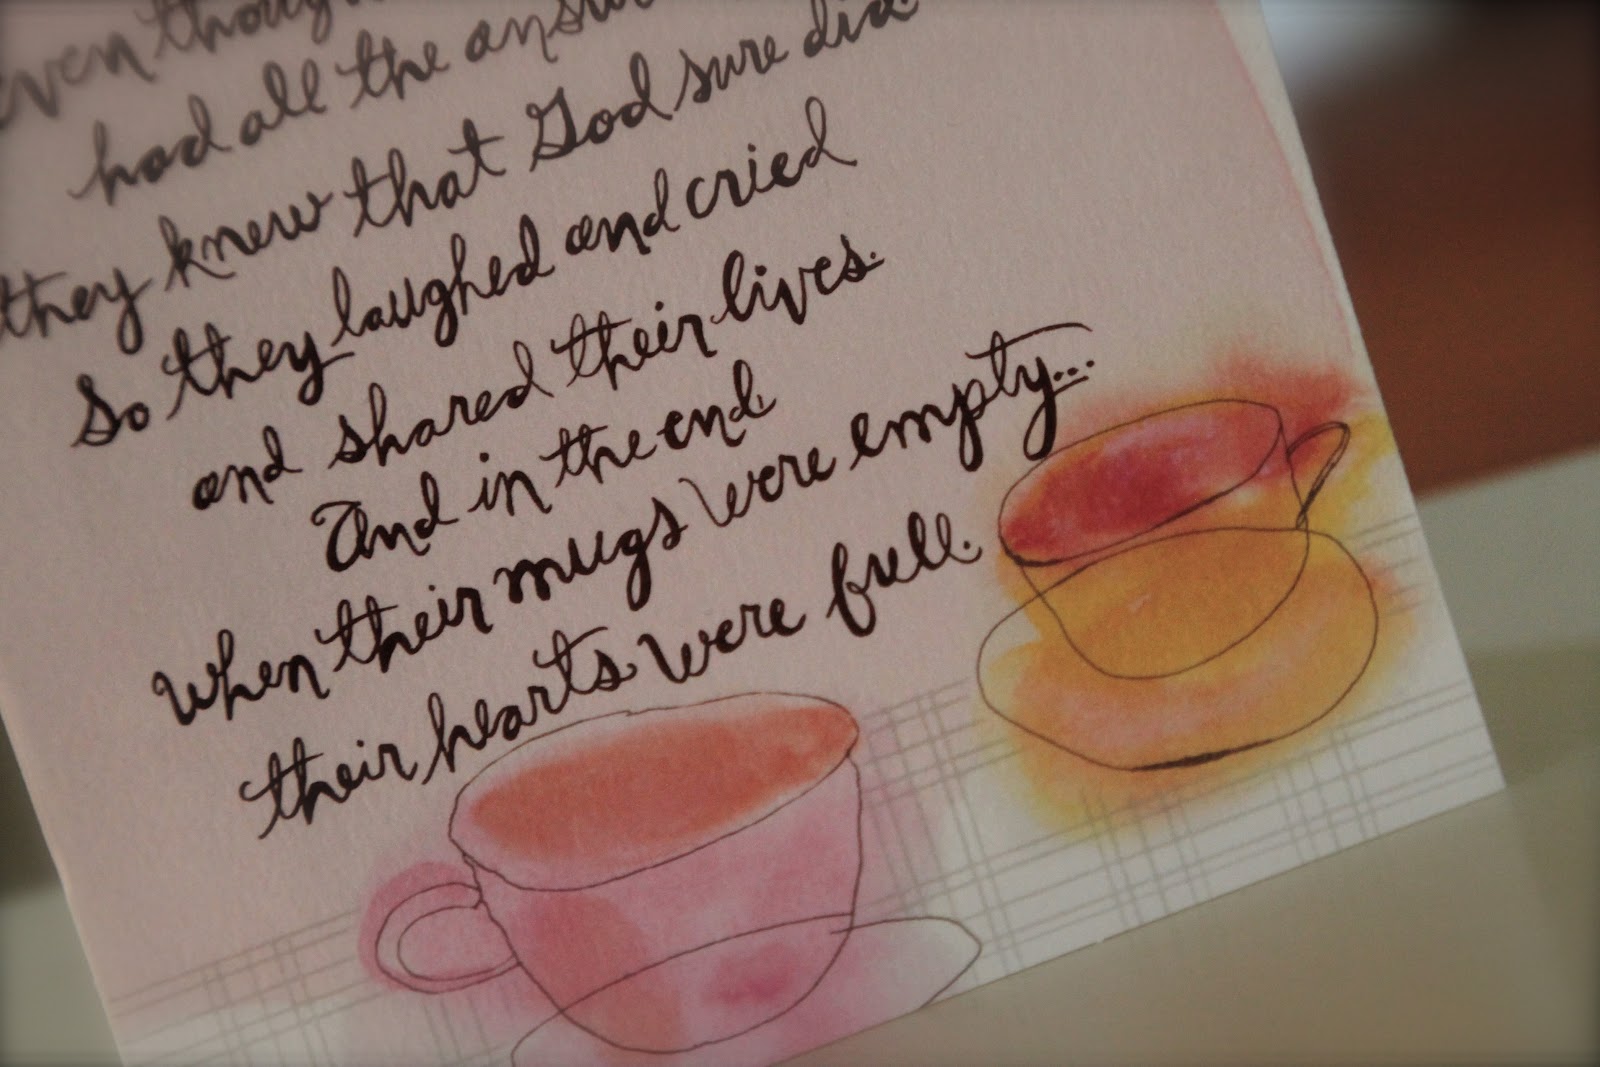 even
had all the
they knew that God sure did.
So they laughed and cried
and shared their lives.
And in the end,
when their mugs were empty...
their hearts were full.